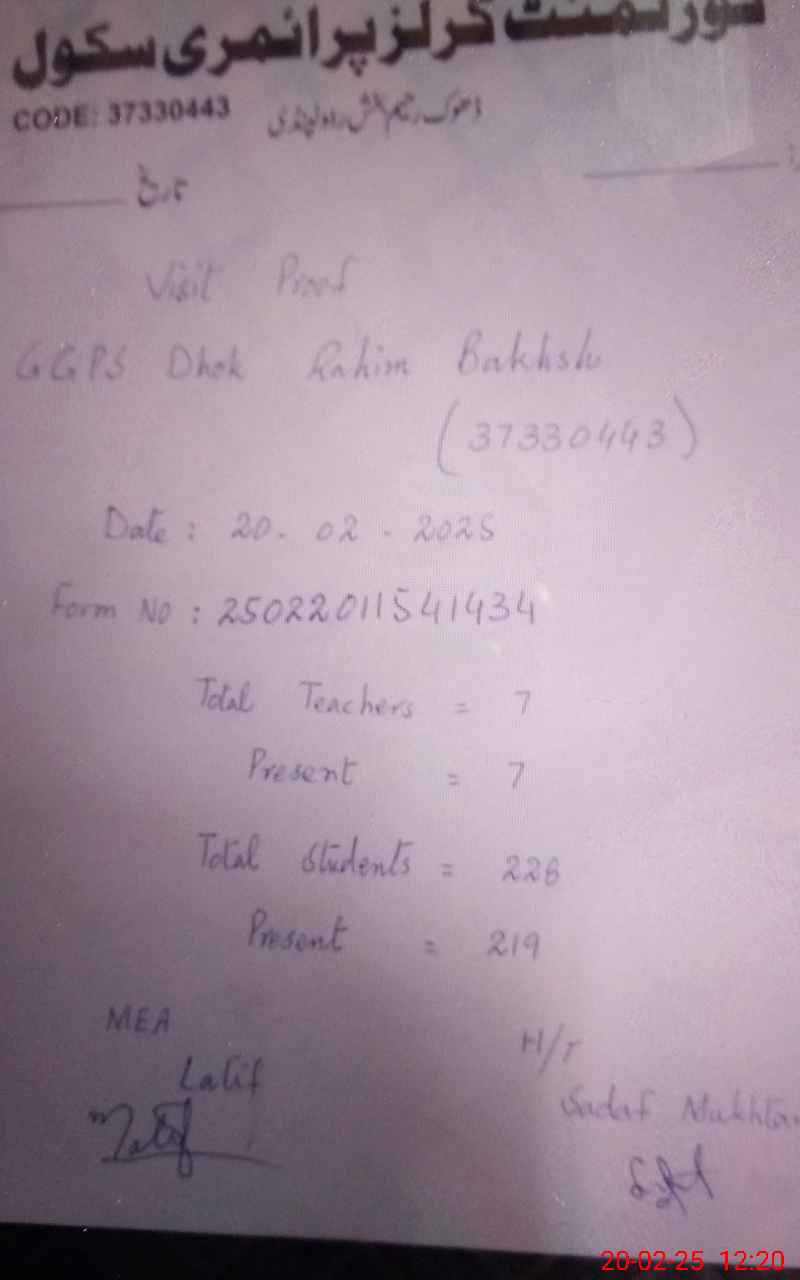 گورنمنٹ گرلز پرائمری سکول
CODE: 37330443 ڈھوک رحیم بخش راولپنڈی
تاریخ
Visit Proof
GGPS Dhok Rahim Bakhsh
(37330443)
Date : 20 - 02 - 2025
Form No : 25022011541434
Total Teachers = 7
Present = 7
Total Students = 226
Present = 219
MEA
H/T
Latif
Sadaf Mukhta
20-02-25 12:20